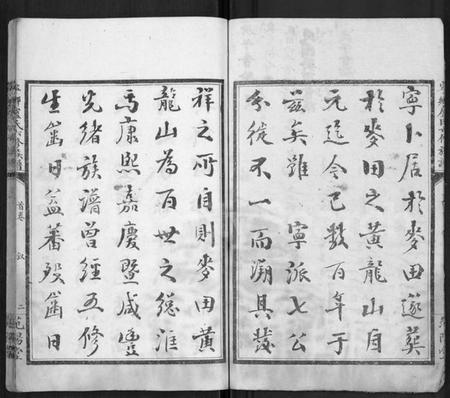 寧卜居於麥田遂葬
於麥田之黃龍山自
元迄今已數百年于
茲矣雖寧派七公
分徙不一而溯其發
祥之所自則麥田黃
龍山為百世之總淮
焉康熙嘉慶暨咸豐
光緒族譜曾經五修
生齒日益蕃歿齒日
首卷
叙
二